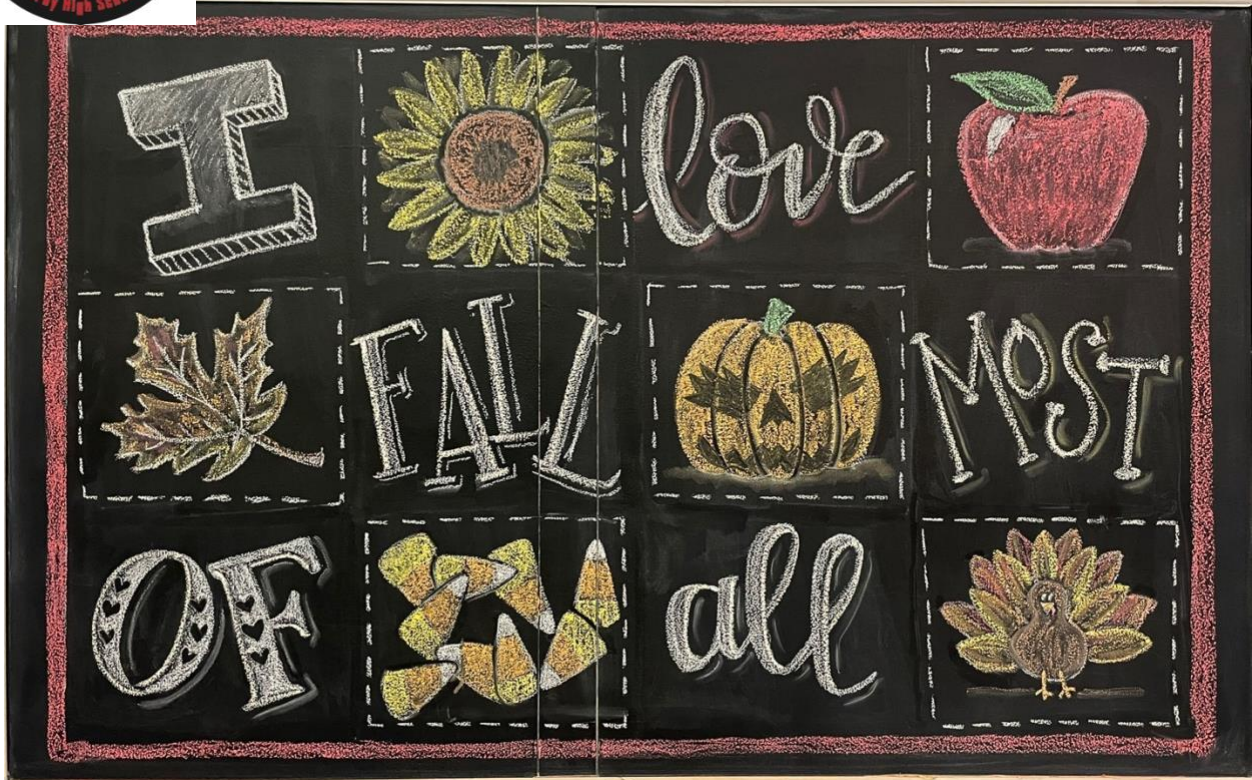 I love
FALL MOST
OF all
High